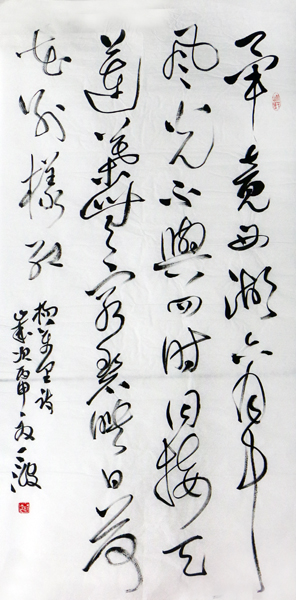 畢竟西湖六月中
風光不與四时同接天
蓮葉無窮碧映日荷
花別樣紅
楊萬里詩
歲次丙申